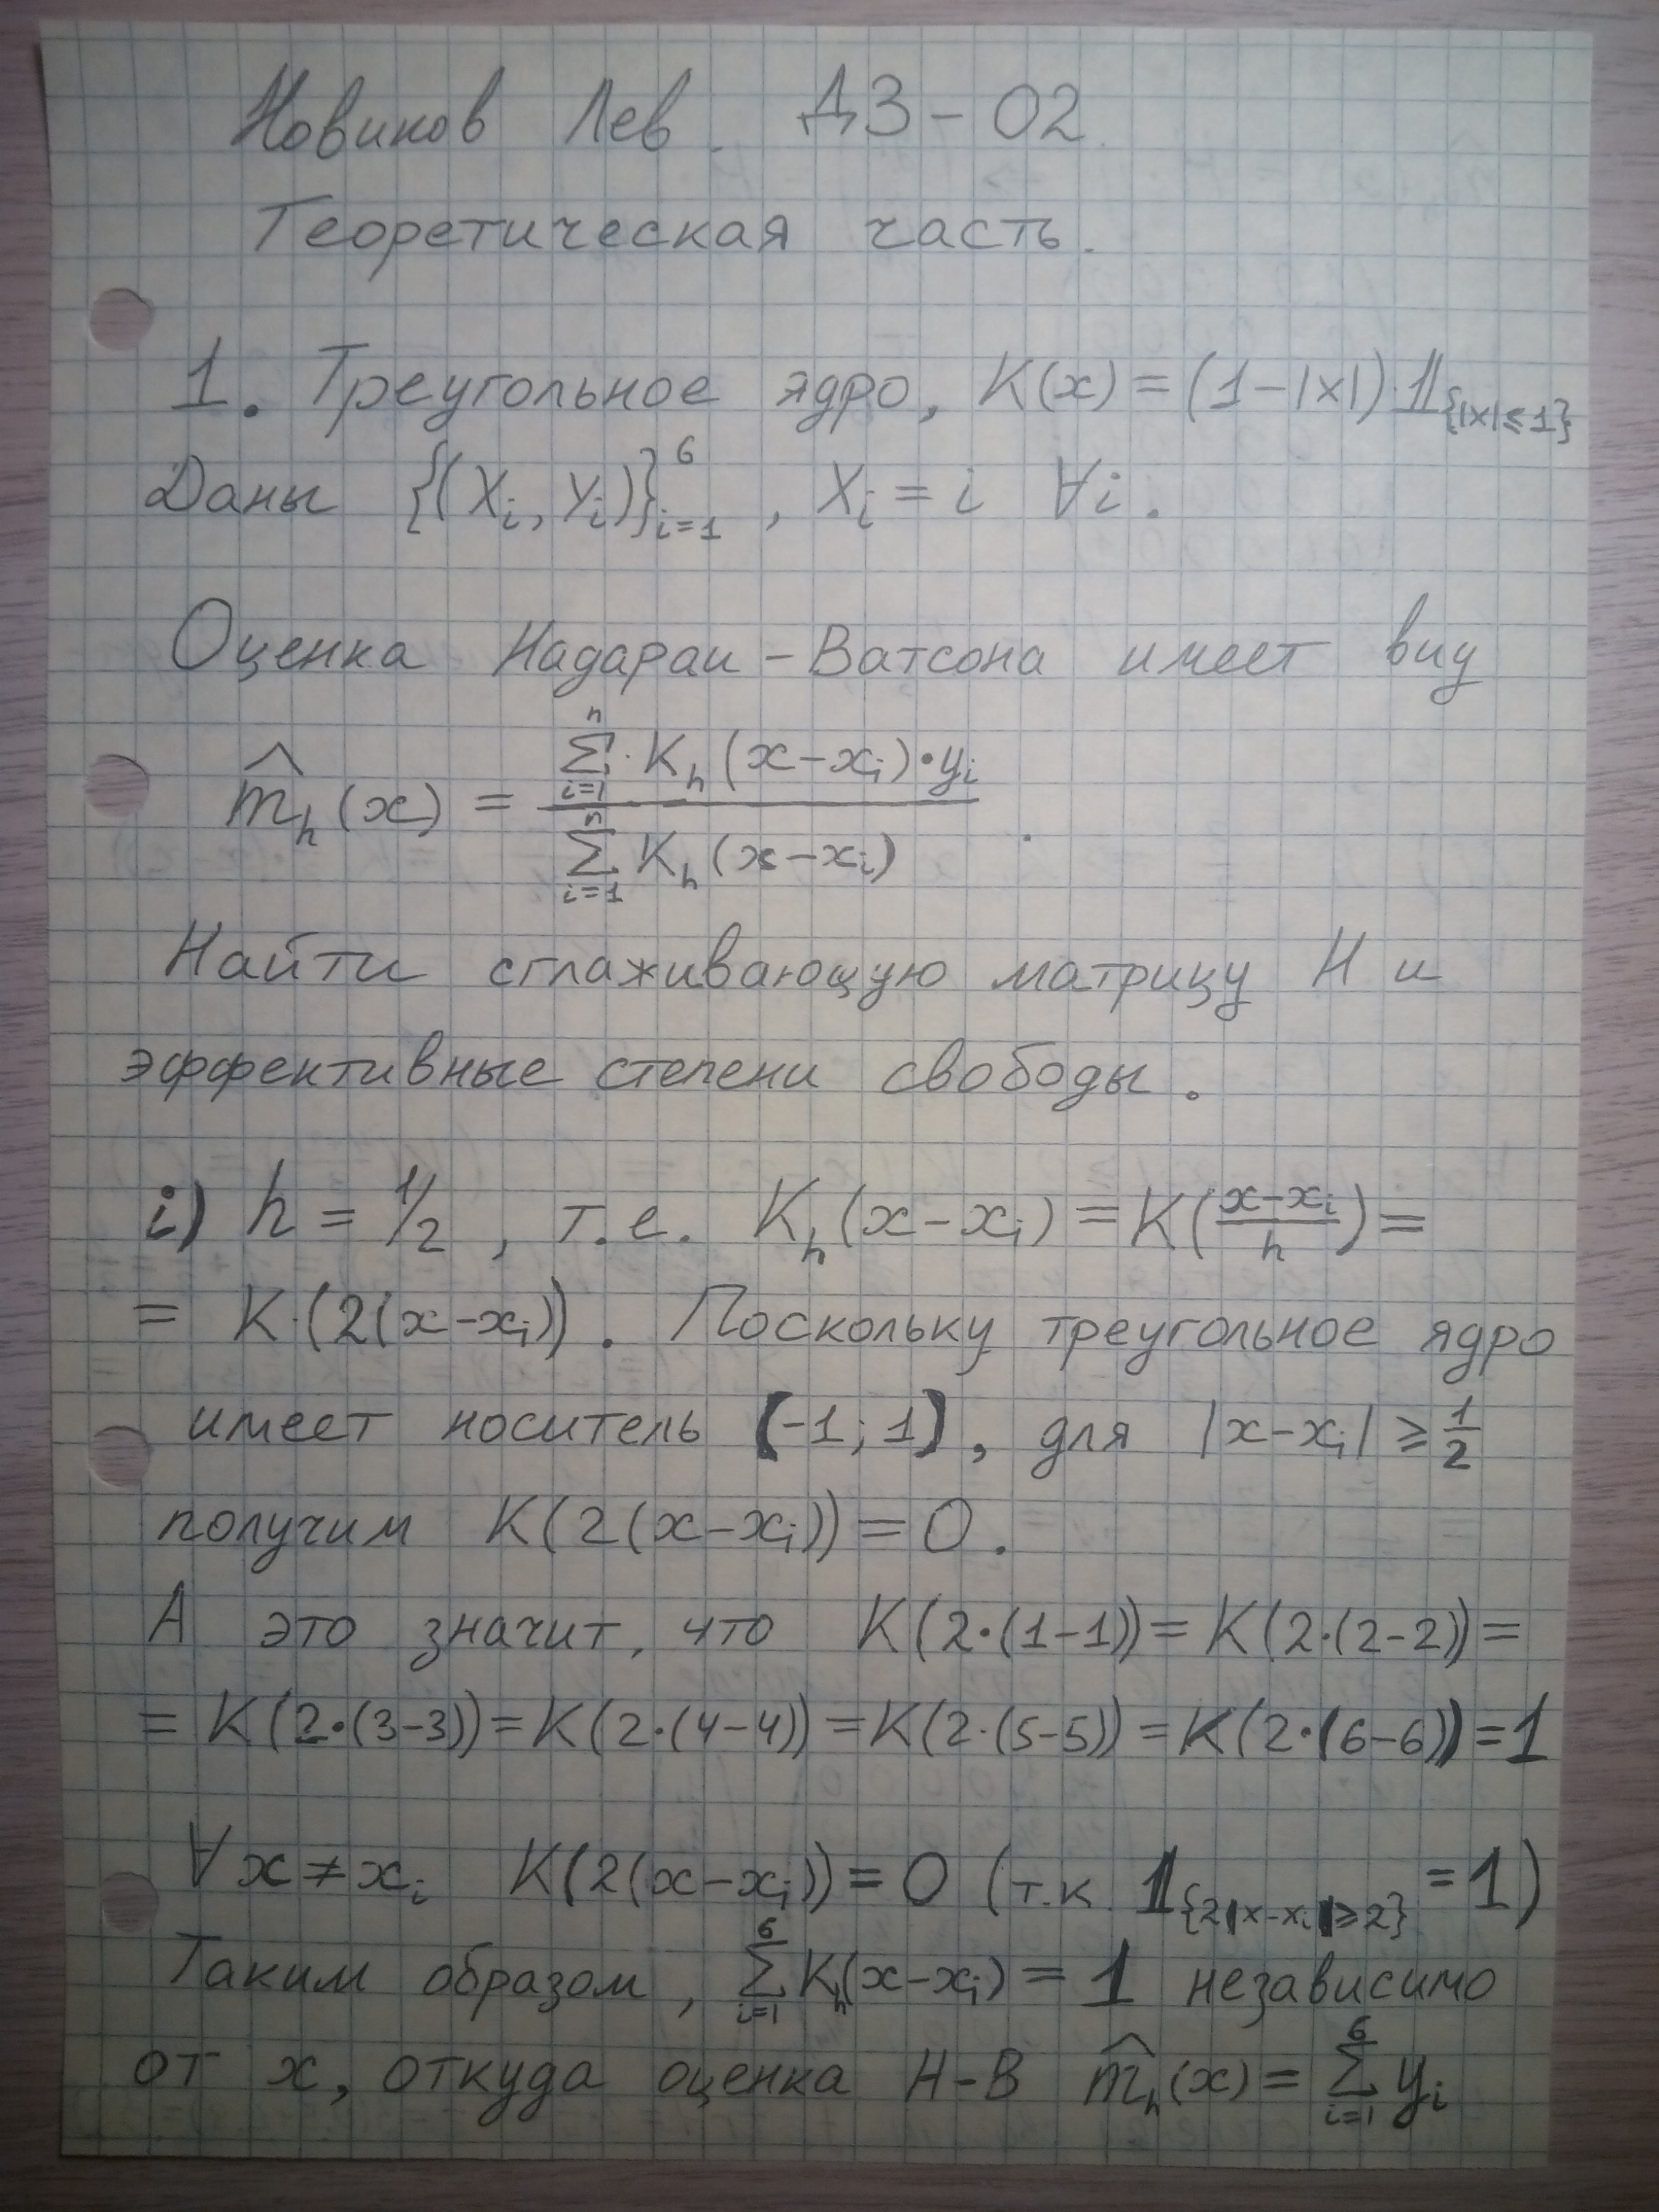 Новиков Лев. ДЗ-02.
Теоретическая часть.
1. Треугольное ядро, K(x) = (1-|x|)·𝟙_{|x|≤1}
Даны {(X_i, Y_i)}_{i=1}^6, X_i = i ∀i.
Оценка Надараи-Ватсона имеет вид
m̂_h(x) = \frac{∑_{i=1}^n K_h(x-x_i)·y_i}{∑_{i=1}^n K_h(x-x_i)}.
Найти сглаживающую матрицу H и
эффективные степени свободы.
i) h = 1/2, т.е. K_h(x-x_i) = K(\frac{x-x_i}{h}) =
= K(2(x-x_i)). Поскольку треугольное ядро
имеет носитель (-1; 1), для |x-x_i| ≥ \frac{1}{2}
получим K(2(x-x_i)) = 0.
А это значит, что K(2·(1-1)) = K(2·(2-2)) =
= K(2·(3-3)) = K(2·(4-4)) = K(2·(5-5)) = K(2·(6-6)) = 1
∀x ≠ x_i K(2(x-x_i)) = 0 (т.к. 𝟙_{2|x-x_i|≥2} = 1)
Таким образом, ∑_{i=1}^6 K_h(x-x_i) = 1 независимо
от x, откуда оценка Н-В m̂_h(x) = ∑_{i=1}^6 y_i